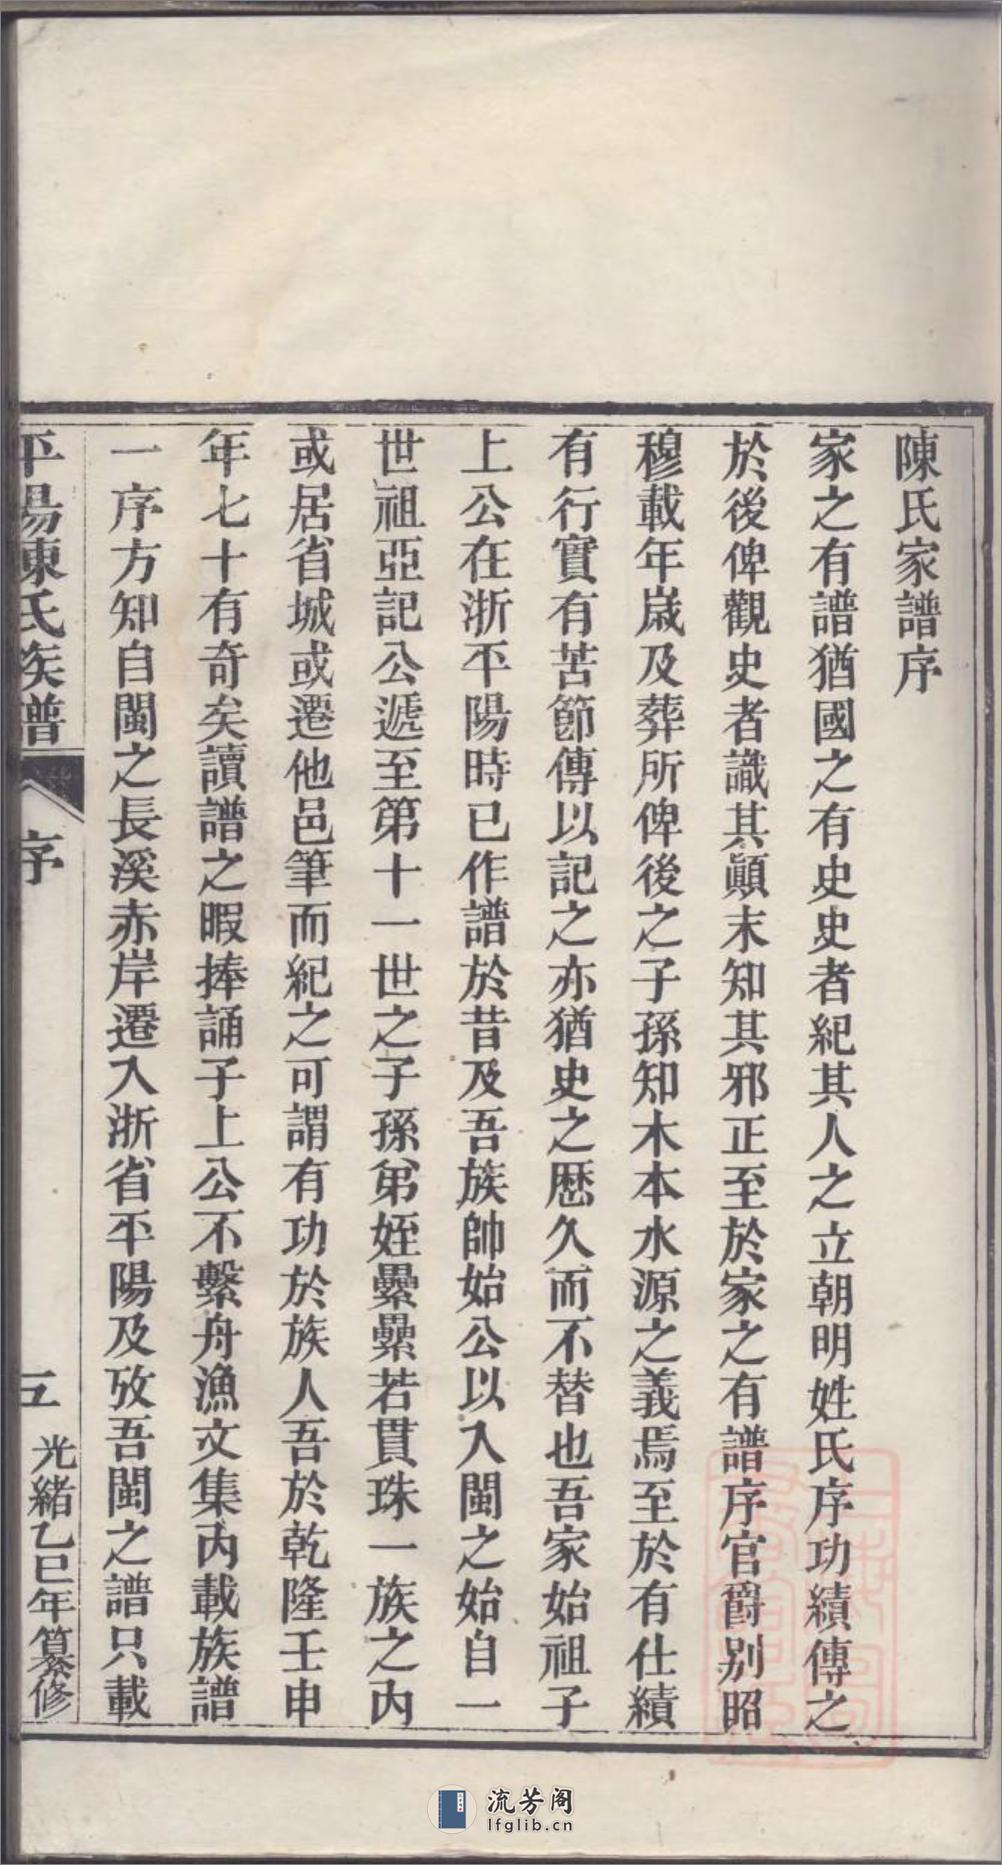 陳氏家譜序
家之有譜猶國之有史史者紀其人之立朝明姓氏序功績傳之
於後俾觀史者識其顚末知其邪正至於家之有譜序官爵别昭
穆載年嵗及葬所俾後之子孫知木本水源之義焉至於有仕績
有行實有苦節傳以記之亦猶史之歷久而不替也吾家始祖子
上公在浙平陽時已作譜於昔及吾族帥始公以入閩之始自一
世祖亞記公遞至第十一世之子孫弟姪纍纍若貫珠一族之内
或居省城或遷他邑筆而紀之可謂有功於族人吾於乾隆壬申
年七十有奇矣讀譜之暇捧誦子上公不繫舟漁文集内載族譜
一序方知自閩之長溪赤岸遷入浙省平陽及攷吾閩之譜只載
平陽陳氏族譜
序
五
光緒乙巳年纂修
流芳阁
lfglib.cn